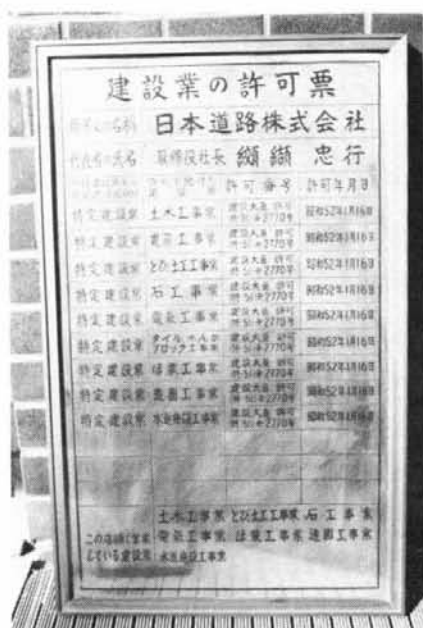 建設業の許可票
商号又は名称 日本道路株式会社
代表者の氏名 取締役社長 纐纈 忠行
許可番号 許可年月日
特定建設業 土木工事業 建設大臣 許可 特-51第2770号 昭和52年1月16日
特定建設業 建築工事業 建設大臣 許可 特-51第2770号 昭和52年1月16日
特定建設業 とび土工工事業 建設大臣 許可 特-51第2770号 昭和52年1月16日
特定建設業 石工事業 建設大臣 許可 特-51第2770号 昭和52年1月16日
特定建設業 電気工事業 建設大臣 許可 特-51第2770号 昭和52年1月16日
特定建設業 タイル・れんが ブロック工事業 建設大臣 許可 特-51第2770号 昭和52年1月16日
特定建設業 ほ装工事業 建設大臣 許可 特-51第2770号 昭和52年1月16日
特定建設業 造園工事業 建設大臣 許可 特-51第2770号 昭和52年1月16日
特定建設業 水道施設工事業 建設大臣 許可 特-51第2770号 昭和52年1月16日
土木工事業 とび土工工事業 石工事業
この店舗で営業 電気工事業 ほ装工事業 造園工事業
している建設業 水道施設工事業